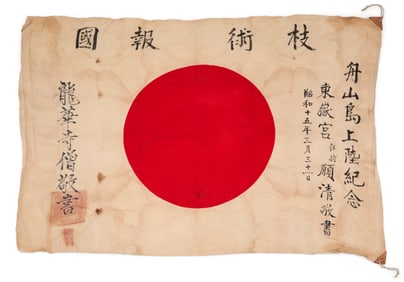 技術報國
舟山島上陸紀念
東嶽宮住持願清敬書
昭和十五年三月三十一日
龍華寺僧敬書